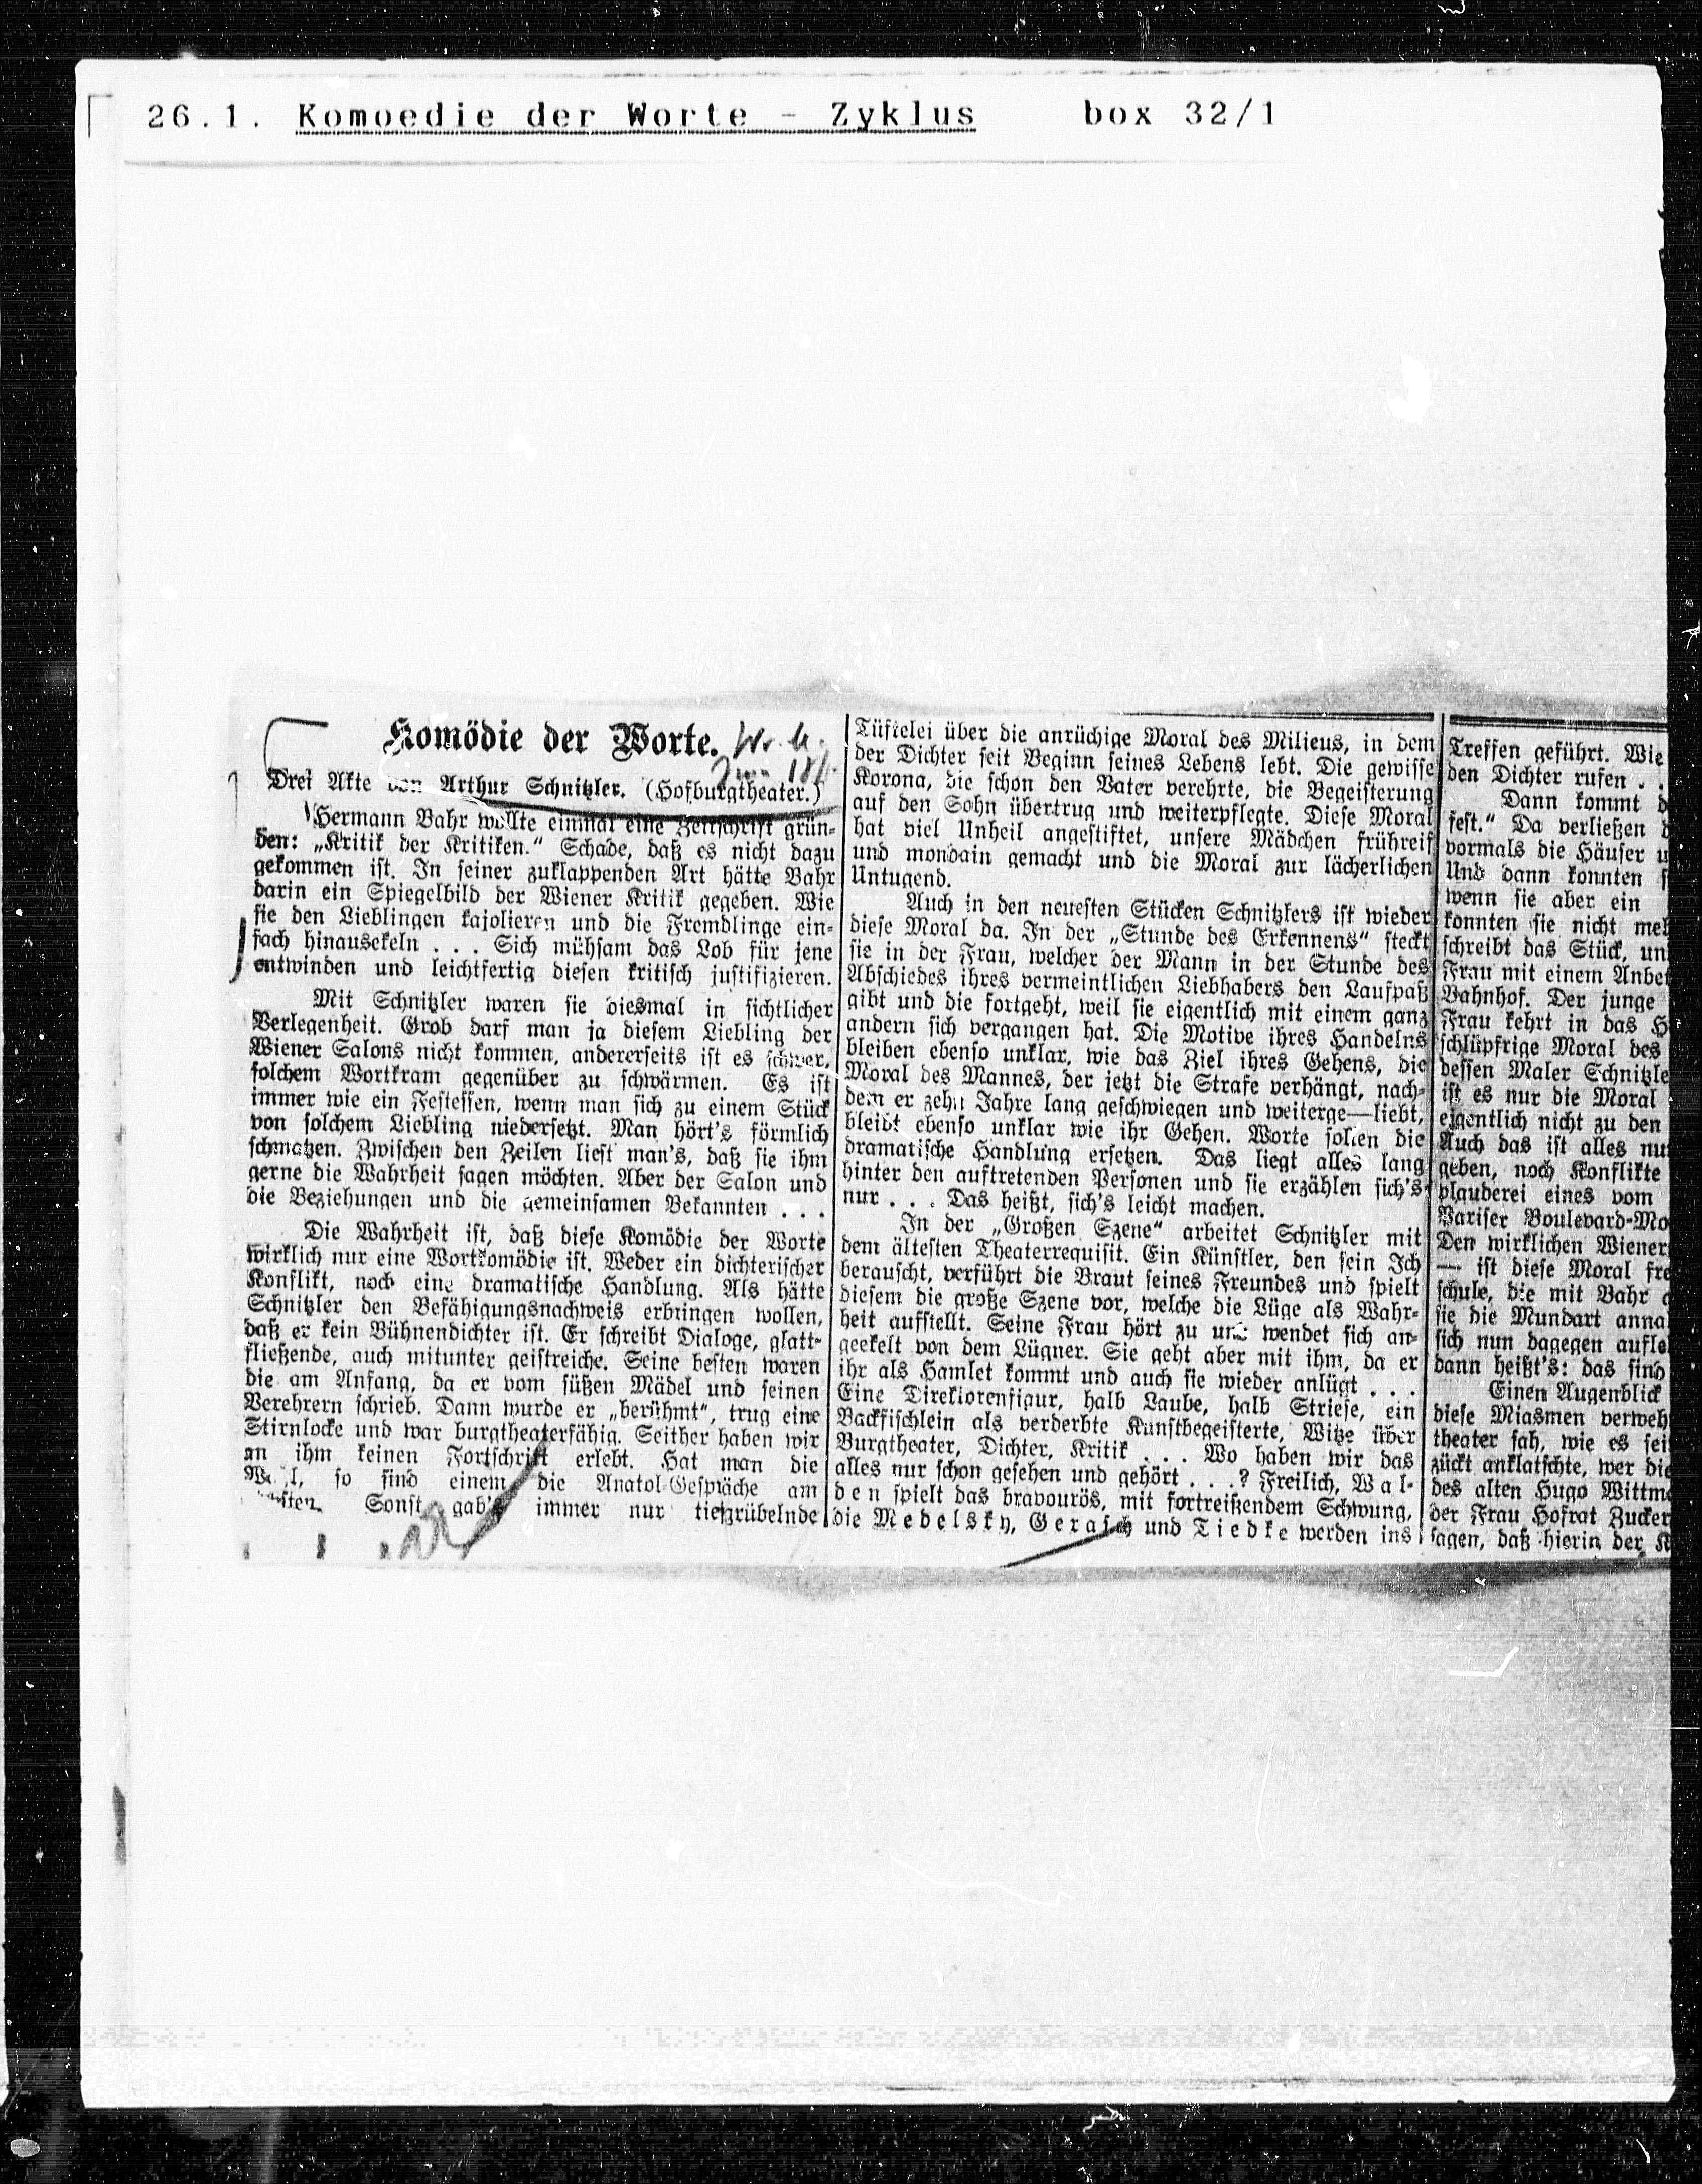 26.1. Komoedie der Worte - Zyklus box 32/1
Komödie der Worte.
Drei Akte von Arthur Schnitzler. (Hofburgtheater.)
Hermann Bahr wollte einmal eine Zeitschrift grün-
den: „Kritik der Kritiken.“ Schade, daß es nicht dazu
gekommen ist. In seiner zuklappenden Art hätte Bahr
darin ein Spiegelbild der Wiener Kritik gegeben. Wie
sie den Lieblingen kajolieren und die Fremdlinge ein-
fach hinausekeln . . . Sich mühsam das Lob für jene
entwinden und leichtfertig diesen kritisch justifizieren.
Mit Schnitzler waren sie diesmal in sichtlicher
Verlegenheit. Grob darf man ja diesem Liebling der
Wiener Salons nicht kommen, andererseits ist es schwer,
solchem Wortkram gegenüber zu schwärmen. Es ist
immer wie ein Festessen, wenn man sich zu einem Stück
von solchem Liebling niedersetzt. Man hört's förmlich
schmatzen. Zwischen den Zeilen liest man's, daß sie ihm
gerne die Wahrheit sagen möchten. Aber der Salon und
die Beziehungen und die gemeinsamen Bekannten . . .
Die Wahrheit ist, daß diese Komödie der Worte
wirklich nur eine Wortkomödie ist. Weder ein dichterischer
Konflikt, noch eine dramatische Handlung. Als hätte
Schnitzler den Befähigungsnachweis erbringen wollen,
daß er kein Bühnendichter ist. Er schreibt Dialoge, glatt-
fließende, auch mitunter geistreiche. Seine besten waren
die am Anfang, da er vom süßen Mädel und seinen
Verehrern schrieb. Dann wurde er „berühmt“, trug eine
Stirnlocke und war burgtheaterfähig. Seither haben wir
an ihm keinen Fortschritt erlebt. Hat man die
so sind einem die Anatol-Gespräche am
Sonst gab's immer nur tiefgrübelnde
Tüftelei über die anrüchige Moral des Milieus, in dem
der Dichter seit Beginn seines Lebens lebt. Die gewisse
Korona, die schon den Vater verehrte, die Begeisterung
auf den Sohn übertrug und weiterpflegte. Diese Moral
hat viel Unheil angestiftet, unsere Mädchen frühreif
und mondain gemacht und die Moral zur lächerlichen
Untugend.
Auch in den neuesten Stücken Schnitzlers ist wieder
diese Moral da. In der „Stunde des Erkennens“ steckt
sie in der Frau, welcher der Mann in der Stunde des
Abschiedes ihres vermeintlichen Liebhabers den Laufpaß
gibt und die fortgeht, weil sie eigentlich mit einem ganz
andern sich vergangen hat. Die Motive ihres Handelns
bleiben ebenso unklar, wie das Ziel ihres Gehens, die
Moral des Mannes, der jetzt die Strafe verhängt, nach-
dem er zehn Jahre lang geschwiegen und weiterge—liebt,
bleibt ebenso unklar wie ihr Gehen. Worte sollen die
dramatische Handlung ersetzen. Das liegt alles lang
hinter den auftretenden Personen und sie erzählen sich's
nur . . . Das heißt, sich's leicht machen.
In der „Großen Szene“ arbeitet Schnitzler mit
dem ältesten Theaterrequisit. Ein Künstler, den sein Ich
berauscht, verführt die Braut seines Freundes und spielt
diesem die große Szene vor, welche die Lüge als Wahr-
heit aufstellt. Seine Frau hört zu und wendet sich an-
geekelt von dem Lügner. Sie geht aber mit ihm, da er
ihr als Hamlet kommt und auch sie wieder anlügt . . .
Eine Direktorenfigur, halb Laube, halb Striese, ein
Backfischlein als verderbte Kunstbegeisterte, Witze über
Burgtheater, Dichter, Kritik . . . Wo haben wir das
alles nur schon gesehen und gehört . . .? Freilich, Wal-
den spielt das bravourös, mit fortreißendem Schwung,
die Medelsky, Gerasch und Tiedke werden ins
Treffen geführt. Wie
den Dichter rufen . .
Dann kommt d
fest.“ Da verließen
vormals die Häuser u
Und dann konnten
wenn sie aber ein
konnten sie nicht meh
schreibt das Stück, un
Frau mit einem Anbet
Bahnhof. Der junge
Frau kehrt in das H
schlüpfrige Moral des
dessen Maler Schnitzle
ist es nur die Moral
eigentlich nicht zu den
Auch das ist alles nu
geben, noch Konflikte
plauderei eines vom
Pariser Boulevard-Mo
Den wirklichen Wiener
— ist diese Moral fre
schule, die mit Bahr
sie die Mundart anna
sich nun dagegen aufle
dann heißt's: das sind
Einen Augenblick
diese Miasmen verweh
theater sah, wie es sei
zückt anklatschte, wer die
des alten Hugo Wittm
der Frau Hofrat Zucker
sagen, daß hierin der K